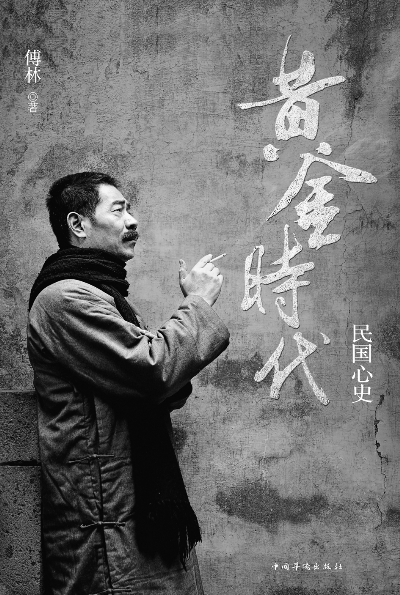 傅林
◎著
黄金時代
民国心史
中国华侨出版社